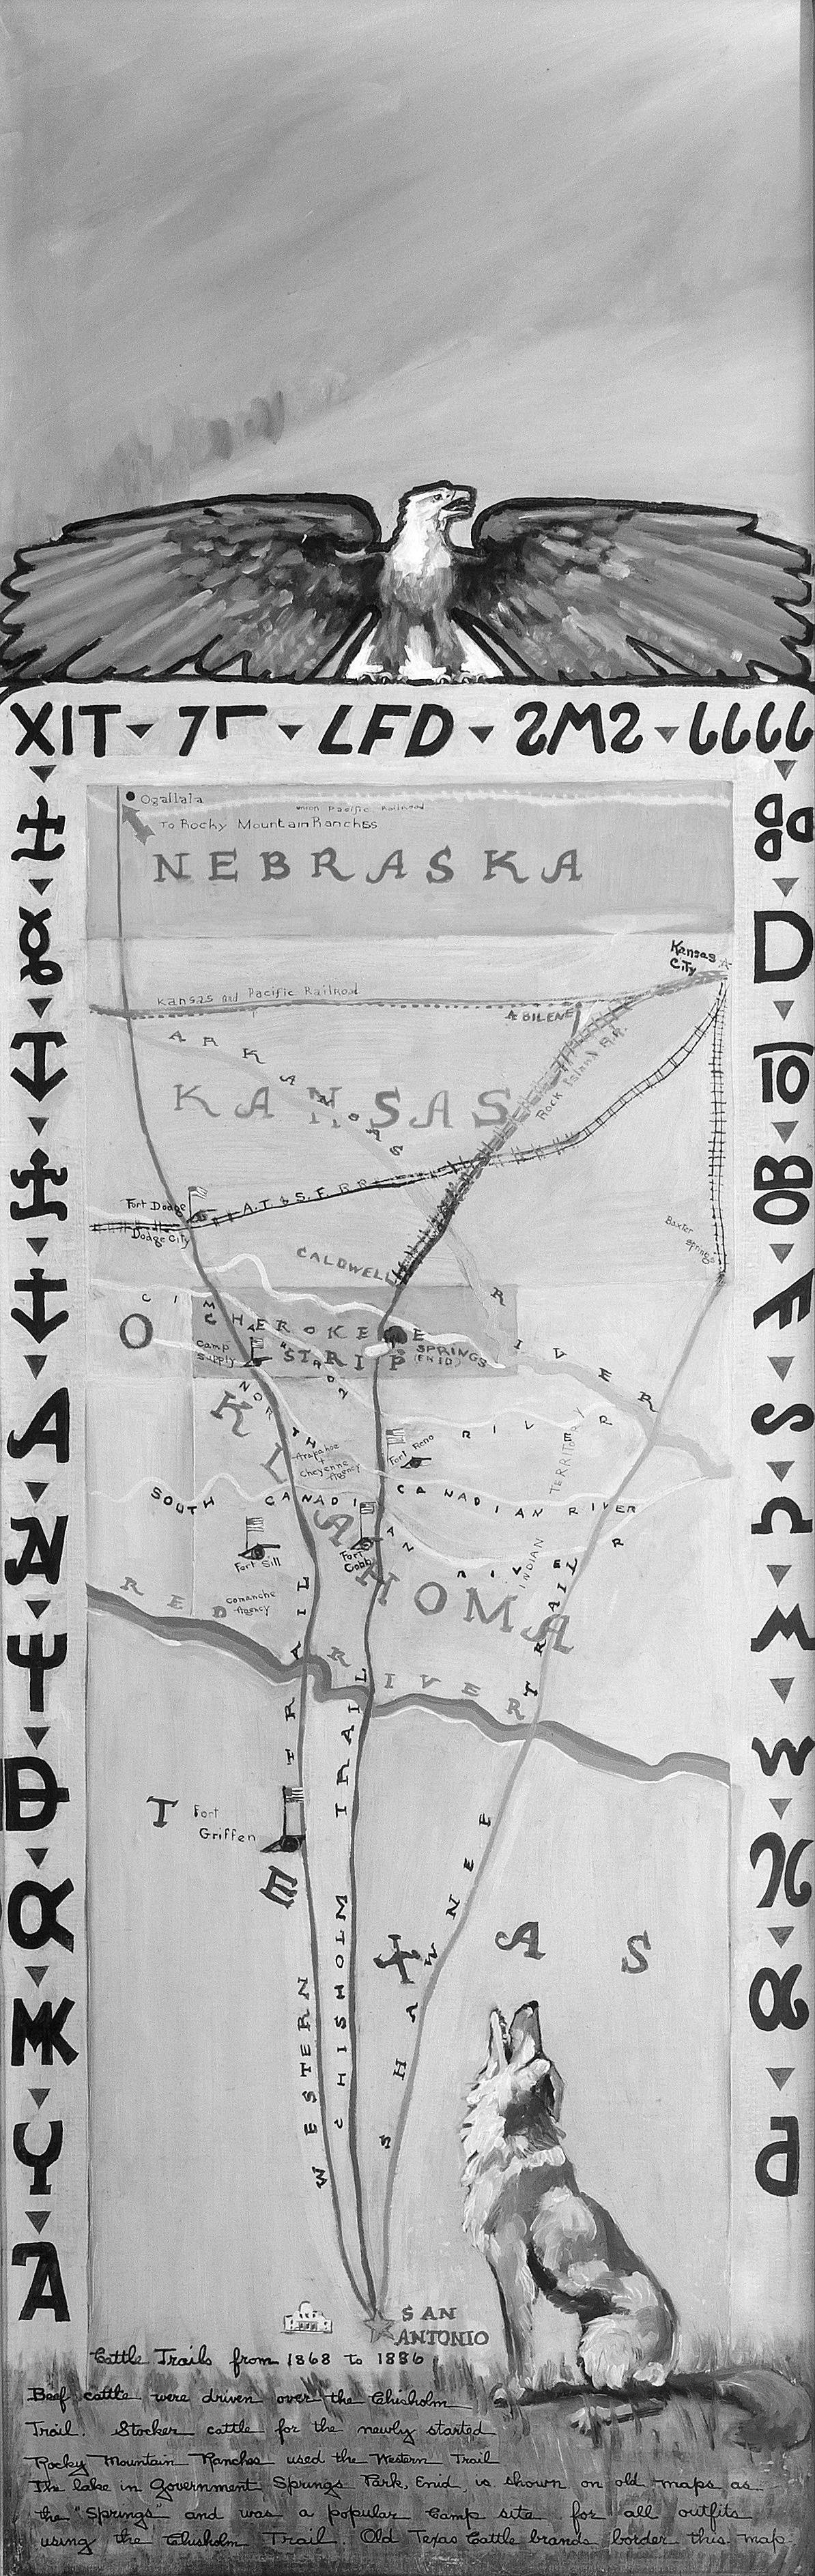 XIT 7 LFD SMS 6666
Ogallala
Union Pacific Railroad
To Rocky Mountain Ranches
NEBRASKA
Kansas
City
Kansas and Pacific Railroad
ABILENE
ARKANSAS
Rock Island R.R.
KANSAS
A.T. & S.F. RR
Fort Dodge
Dodge City
Baxter
Springs
CALDWELL
RIVER
CIM
CHEROKEE
STRIP
SPRINGS
(ENID)
Camp
Supply
OKLAHOMA
NORTH
RIVER
Arapahoe
+
Cheyenne
Agency
Fort Reno
INDIAN TERRITORY
SOUTH CANADI CANADIAN RIVER
AN RIVER
Fort Sill
Fort
Cobb
Comanche
Agency
RED RIVER
WESTERN TRAIL
CHISHOLM TRAIL
SHAWNEE TRAIL
Fort
Griffen
TEXAS
SAN
ANTONIO
Cattle Trails from 1868 to 1886
Beef cattle were driven over the Chisholm
Trail. Stocker cattle for the newly started
Rocky Mountain Ranches used the Western Trail
The lake in Government Springs Park, Enid, is shown on old maps as
the "Springs" and was a popular Camp site for all outfits
using the Chisholm Trail. Old Texas Cattle brands border this map.